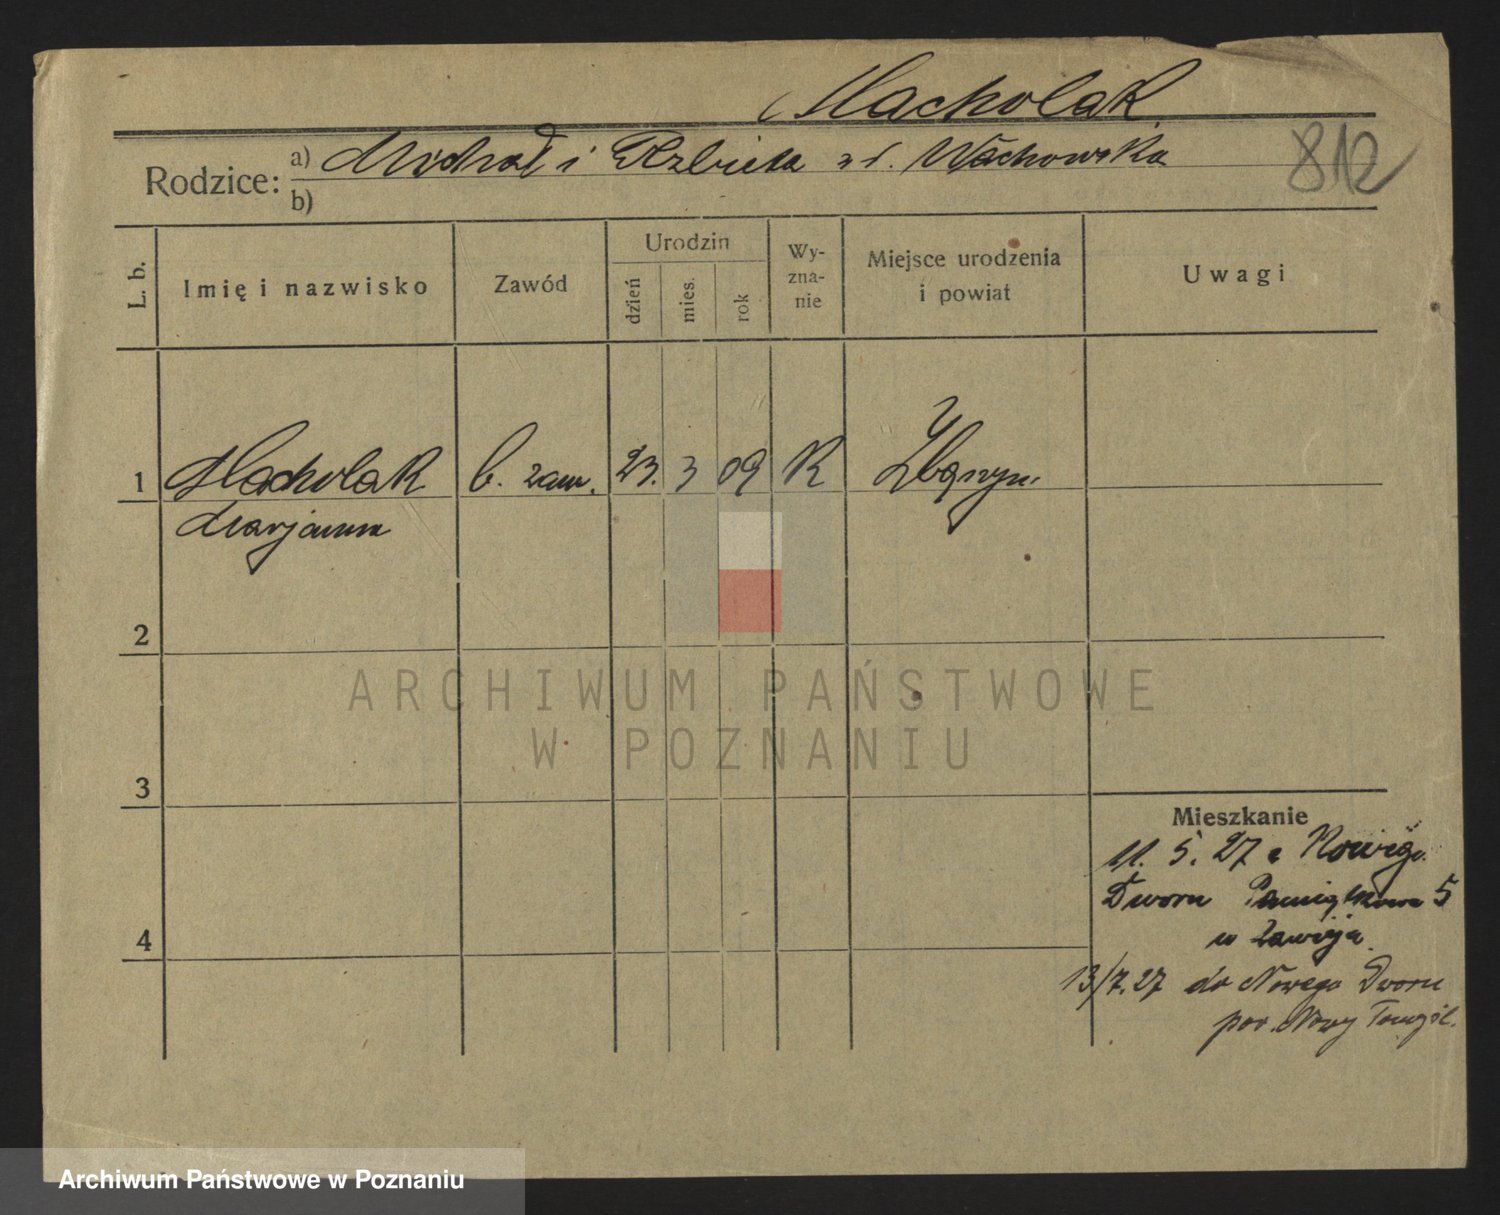 Macholak
812
Rodzice: a) Michał i Elzbieta z d. Wachowska
b)
L. b.
Imię i nazwisko
Zawód
Urodzin
dzień
mies.
rok
Wy-
zna-
nie
Miejsce urodzenia
i powiat
Uwagi
1 Macholak b. zaw. 23. 3 09 K Zbąszyn.
Marjanna
2
3
4
Mieszkanie
11. 5. 27 z Nowego
Dworu Pamiątkowa 5
u
13/7.27 do Nowego Dworu
pow. Nowy Tomyśl.
ARCHIWUM PAŃSTWOWE
W POZNANIU
Archiwum Państwowe w Poznaniu